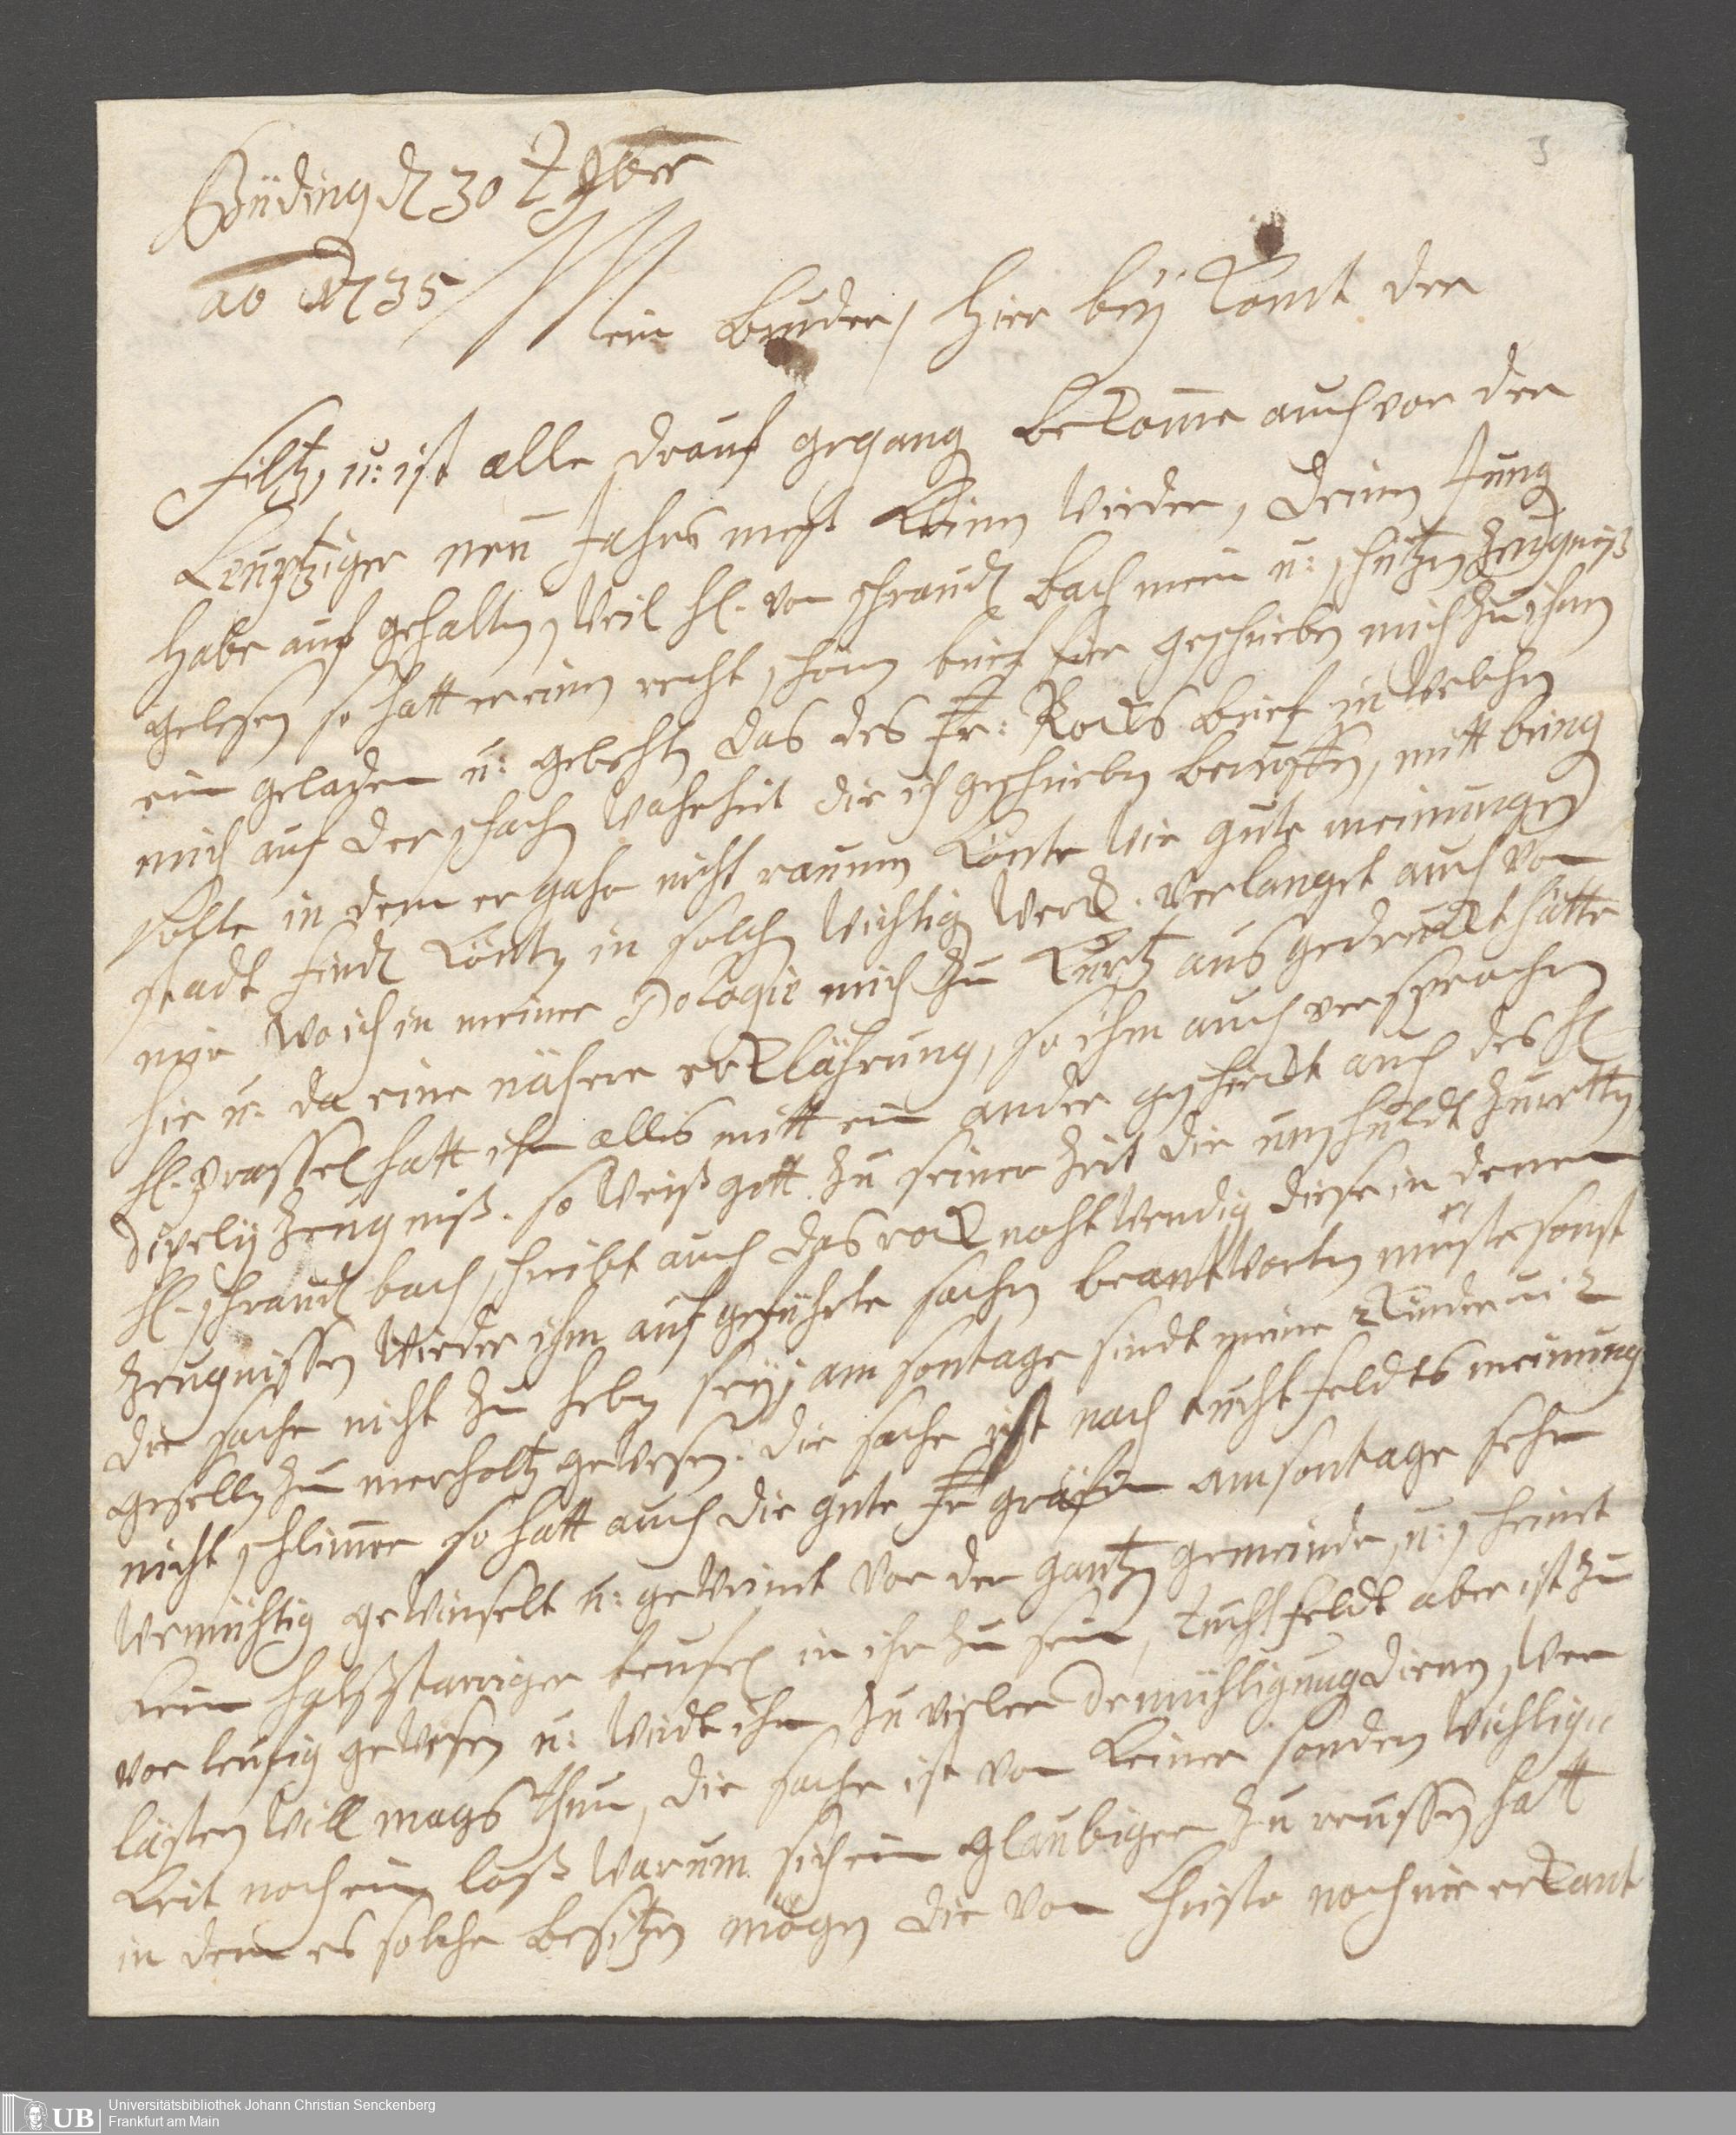 3
Büding d 30 t 9ber
ao 1735
Mein bruder, hier beÿ komt der
filtz, u: ist alle drauf gegang bekome auch vor der
Leuptziger neu Jahrs meß keinen wieder, deinen Jung
habe auf gehalten, weil H. von schraud bach mein u: schützen zeugniß
gelesen so hatt er einen recht schönen brief hier geschrieben mich zu ihm
ein geladen u: gebehten das des Fr: Rocks brief in welchen
mich auf der sachen wahrheit die ich geschrieben beruffen, mitt bring
solte in dem er gahr nicht raumen könte wie gute meinungen
stadt find könten in solchen wichtig werck. verlanget auch von
mir wo ich in meiner Pologie mich zu kurtz aus gedruckt hätte
hie u: da eine nähere erklährung, so ihm auch versprochen
H. prassel hatt ihm alles mitt ein ander geschickt auch des H
Dipely zeugniß. so weiß gott zu seiner zeit die unschuldt zu retten
H. schraud bach schreibt auch das rock noht wendig diese in denen
zeugnissen wieder ihm auf geführte sachen beantworten müste sonst
die sache nicht zu heben seÿ, am sontage sindt meine kinder u: 2
gesellen zu merholtz gewesen. die sache ist nach tucht feldts meinung
nicht schlimer so hatt auch die gute Fr gräfin am sontage sehr
wemühtig gewinselt u: geweint vor der gantzen gemeinde, u: scheint
kein halßstarriger teufel in ihr zu sein, tuchtfeldt aber ist zu
vor leufig gewesen u: wirdt ihm zu vieler demühtigung dienen, wer
lästern will mags thun, die sache ist von keiner sondern wichtig
keit noch ein laß warum sich ein glaubiger zu reussen hatt
in dem es solche besitzen mögen die von Christo noch nie erkant
Universitätsbibliothek Johann Christian Senckenberg
Frankfurt am Main
UB